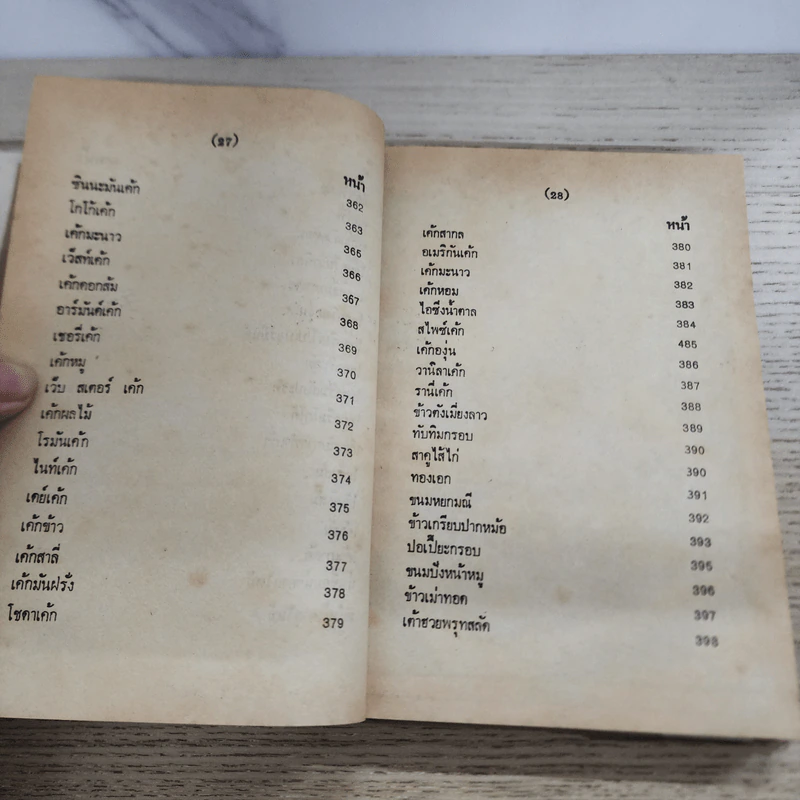 (27)
หน้า
ซินนะมันเค้ก 362
โกโก้เค้ก 363
เค้กมะนาว 365
เว็สท์เค้ก 366
เค้กดอกส้ม 367
อาร์มันด์เค้ก 368
เชอรี่เค้ก 369
เค้กหมู 370
เว็บ สเตอร์ เค้ก 371
เค้กผลไม้ 372
โรมันเค้ก 373
ไนท์เค้ก 374
เดย์เค้ก 375
เค้กข้าว 376
เค้กสาลี่ 377
เค้กมันฝรั่ง 378
โซดาเค้ก 379
(28)
หน้า
เค้กสากล 380
อเมริกันเค้ก 381
เค้กมะนาว 382
เค้กหอม 383
ไอซิ่งน้ำตาล 384
สไพซ์เค้ก 485
เค้กองุ่น 386
วานิลาเค้ก 387
รานี่เค้ก 388
ข้าวตังเมี่ยงลาว 389
ทับทิมกรอบ 390
สาคูไส้ไก่ 390
ทองเอก 391
ขนมหยกมณี 392
ข้าวเกรียบปากหม้อ 393
ปอเปี๊ยะกรอบ 395
ขนมปังหน้าหมู 396
ข้าวเม่าทอด 397
เต้าฮวยฟรุทสลัด 398